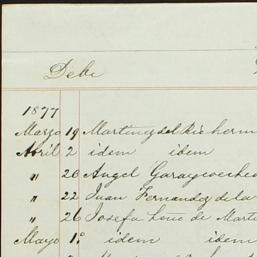 Debe
1877
Marzo 19 Martinez del Rio herm
Abril 2 idem ibem
" 20 Angel
" 22 Juan Fernandez de la
" 26 Josefa de Marti
Mayo 1º idem ibem